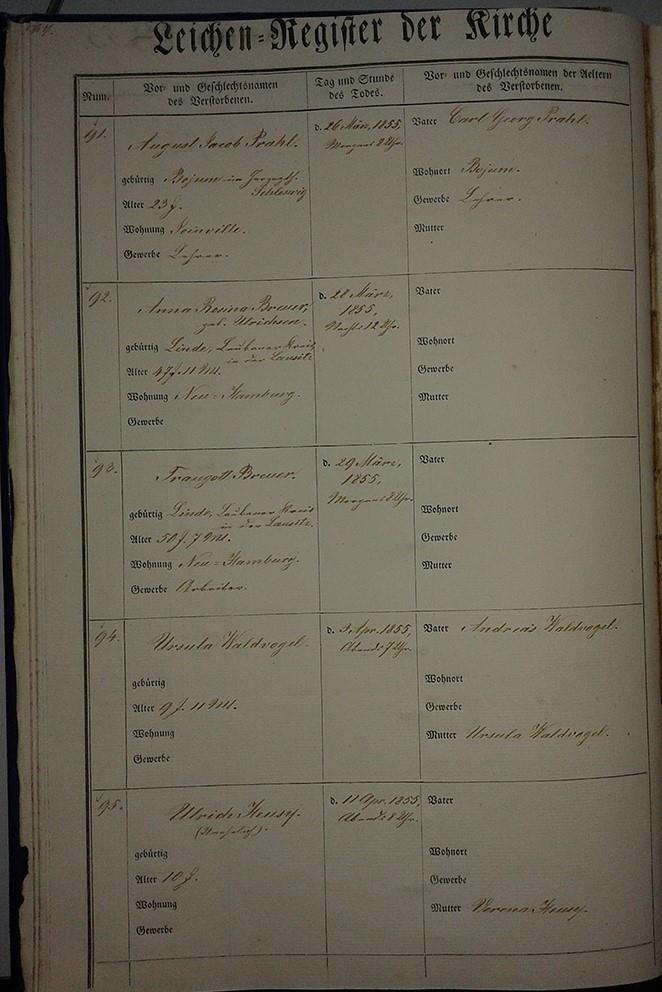 Leichen-Register der Kirche
Num.
Vor- und Geschlechtsnamen
des Verstorbenen.
Tag und Stunde
des Todes.
Vor- und Geschlechtsnamen der Aeltern
des Verstorbenen.
91.
August Jacob Prahl.
gebürtig Bojum im Herzogth.
Schleswig
Alter 23 J.
Wohnung Joinville.
Gewerbe Lehrer.
d. 26 März, 1855,
Morgens 8 Uhr.
Vater Carl Georg Prahl.
Wohnort Bojum.
Gewerbe Lehrer.
Mutter
92.
Anna Rosina Breuer,
geb. Ulrichsen.
gebürtig Linde, Laubaner Kreis
in der Lausitz
Alter 47 J. 11 M.
Wohnung Neu-Hamburg.
Gewerbe
d. 28 März,
1855,
Nachts 12 Uhr.
Vater
Wohnort
Gewerbe
Mutter
93.
Traugott Breuer.
gebürtig Linde, Laubaner Kreis
in der Lausitz.
Alter 50 J. 7 M.
Wohnung Neu-Hamburg.
Gewerbe Arbeiter.
d. 29 März,
1855,
Morgens 8 Uhr.
Vater
Wohnort
Gewerbe
Mutter
94.
Ursula Waldvogel.
gebürtig
Alter 9 J. 11 M.
Wohnung
Gewerbe
d. 3 Apr. 1855,
Abends 7 Uhr.
Vater Andreas Waldvogel.
Wohnort
Gewerbe
Mutter Ursula Waldvogel.
95.
Ulrich Heusy.
(Unehelich).
gebürtig
Alter 10 J.
Wohnung
Gewerbe
d. 11 Apr. 1855,
Abends 8 Uhr.
Vater
Wohnort
Gewerbe
Mutter Verena Heusy.